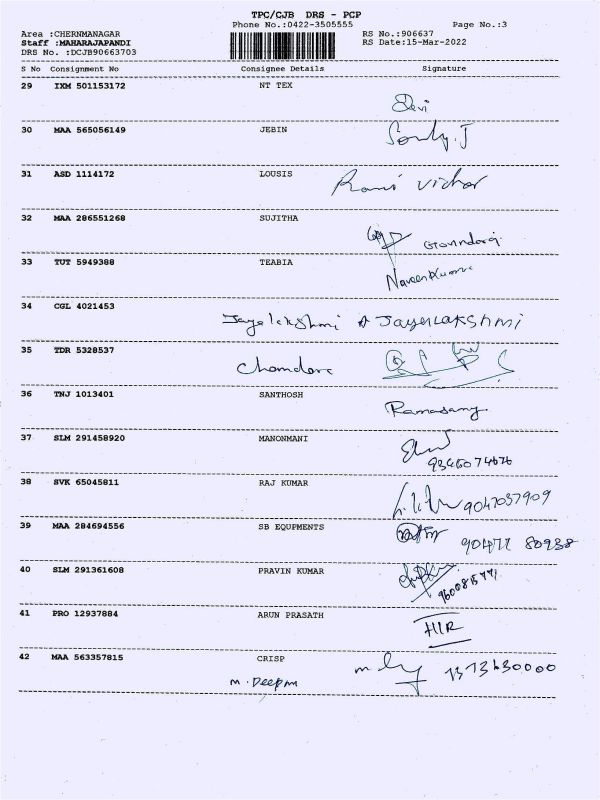 TPC/CJB DRS - PCP
Phone No.:0422-3505555 Page No.:3
Area :CHERNMANAGAR RS No.:906637
Staff :MAHARAJAPANDI RS Date:15-Mar-2022
DRS No. :DCJB90663703
S No Consignment No Consignee Details Signature
29 IXM 501153172 NT TEX
Devi
30 MAA 565056149 JEBIN
31 ASD 1114172 LOUSIS
Rani
32 MAA 286551268 SUJITHA
Govindaraj
33 TUT 5949388 TEABIA
NaveenKumar
34 CGL 4021453
Jayalakshmi A JAYALAKSHMI
35 TDR 5328537
Chandara
36 TNJ 1013401 SANTHOSH
Ramasamy
37 SLM 291458920 MANONMANI
38 SVK 65045811 RAJ KUMAR
9047037909
39 MAA 284694556 SB EQUPMENTS
40 SLM 291361608 PRAVIN KUMAR
41 PRO 12937884 ARUN PRASATH
42 MAA 563357815 CRISP
M. Deepan